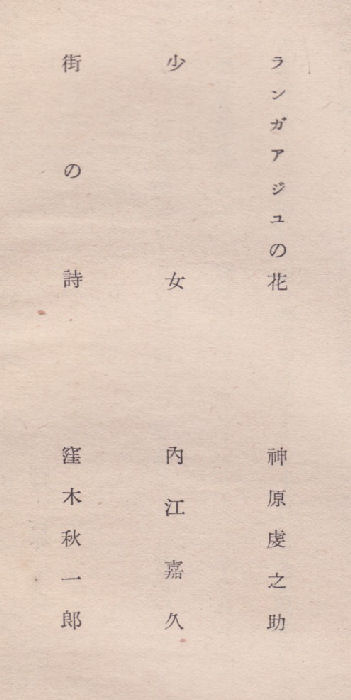 ランガアジユの花　神原虔之助
少女　內江嘉久
街の詩　窪木秋一郎